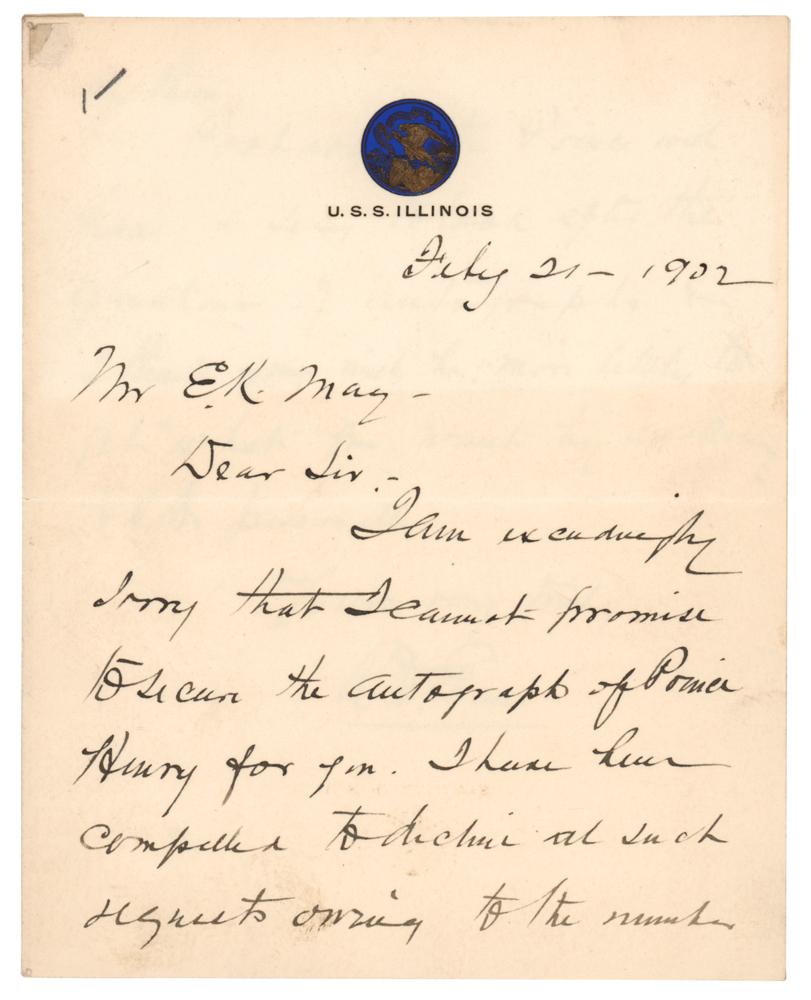 U.S.S. ILLINOIS
Feby 21 – 1902
Mr E.K. May –
Dear Sir. –
I am exceedingly
sorry that I cannot promise
to secure the autograph of Prince
Henry for you. I have been
compelled to decline all such
requests owing to the number